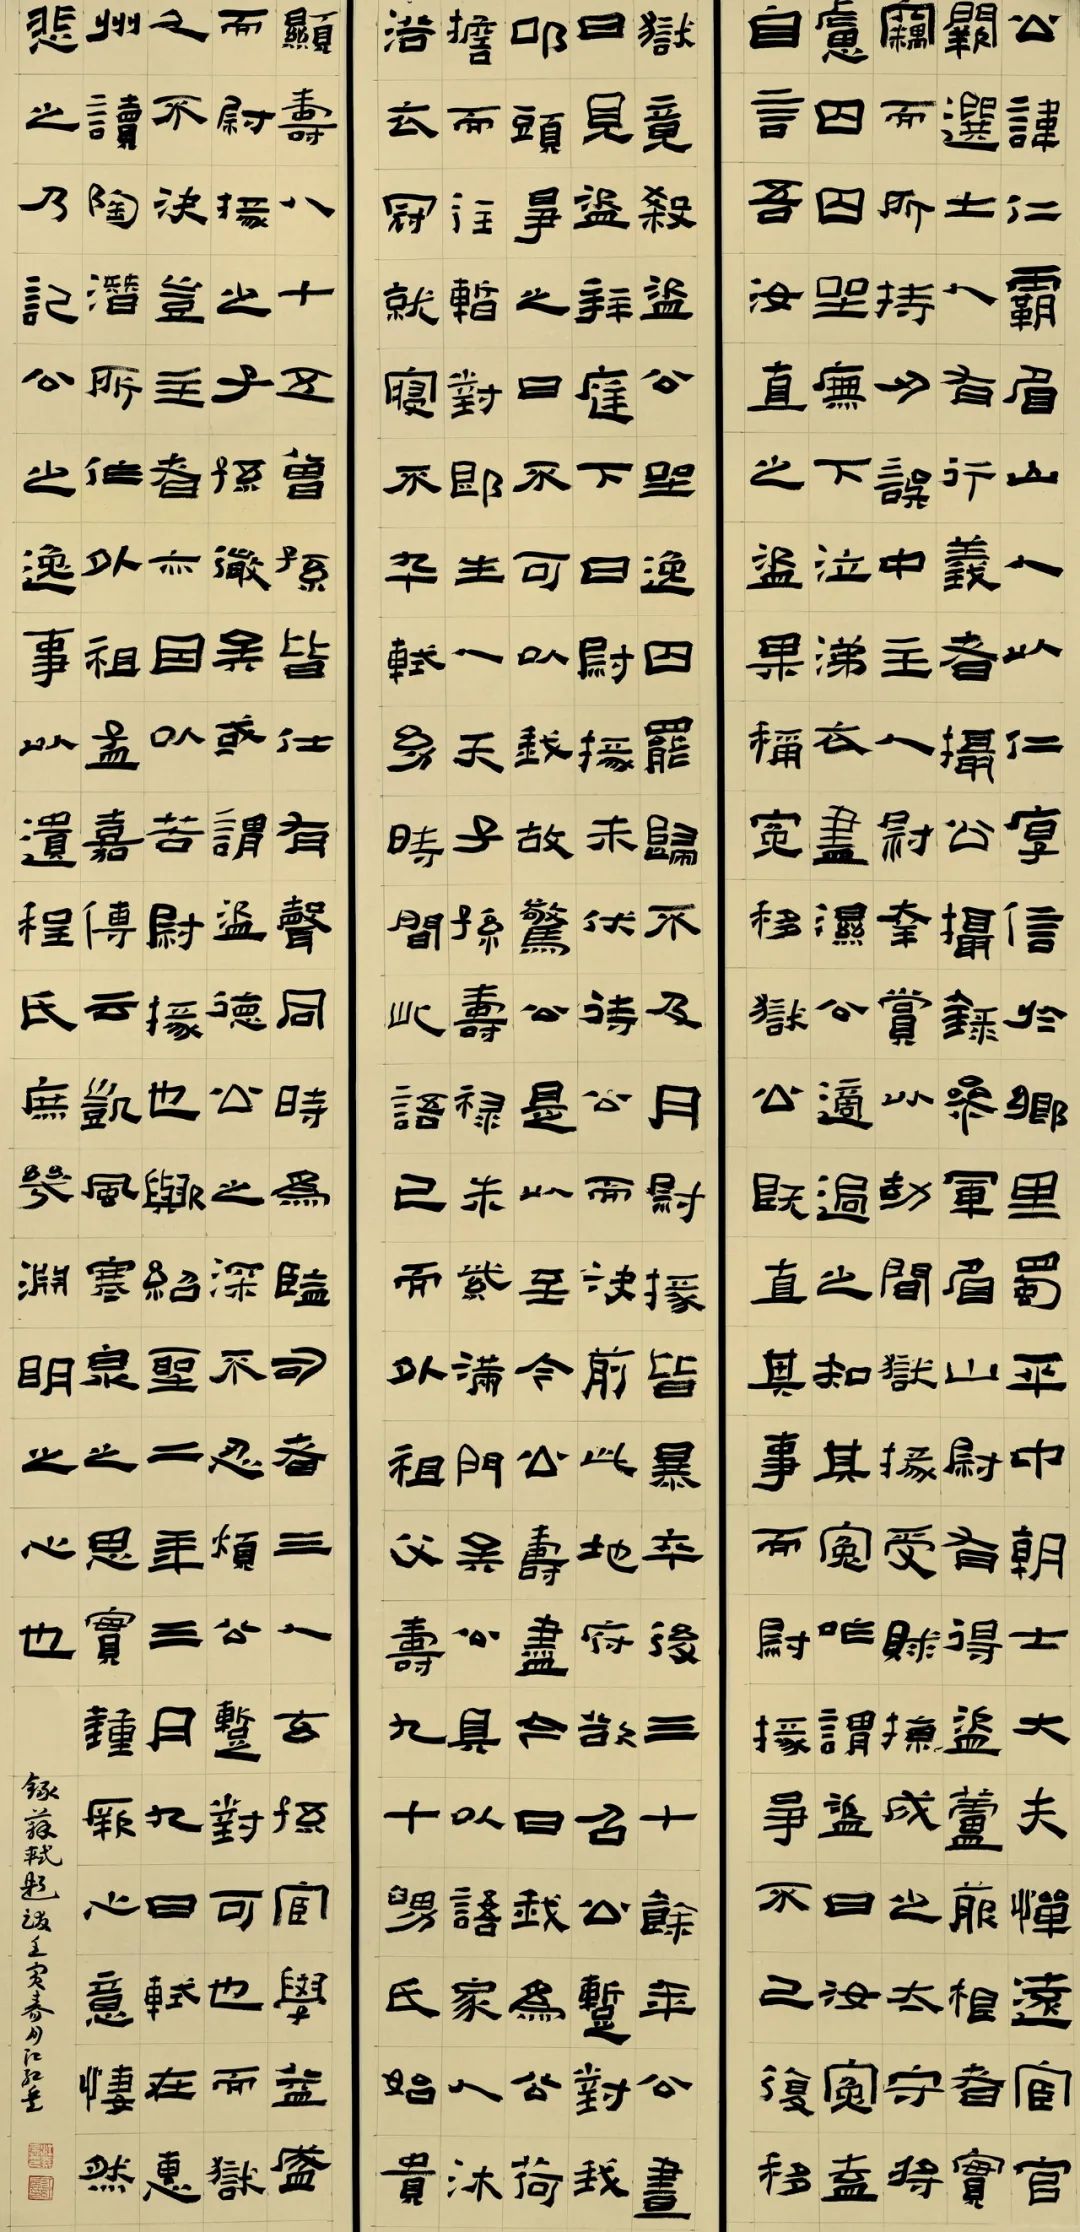 公諱仁霸眉山人以仁厚信於鄉里蜀平中朝士大夫憚遠宦官
闕選士人有行義者攝公攝錄參軍眉山尉有得盜蘆菔根者實
竊而所持刃誤中主人尉幸賞以劾聞獄掾受財掠成之太守將
慮囚囚坐廡下泣涕衣盡濕公適過之知其冤咋謂盜曰汝冤盍
自言吾汝直之盜果稱冤移獄公既直其事而尉掾爭不已復移
獄竟殺盜公坐逸囚罷歸不及月尉掾皆暴卒後三十餘年公晝
日見盜拜庭下曰尉掾未伏待公而決前此地府欲召公暫對我
叩頭爭之曰不可以我故驚公是以至今公壽盡今日我為公荷
擔而往暫對即生人天子孫壽祿朱紫滿門矣公具以語家人沐
浴衣冠就寢不卒軾幼時聞此語已而外祖父壽九十舅氏始貴
顯壽八十五曾孫皆仕有聲同時為監司者三人玄孫宦學益盛
而尉掾之子孫微矣或謂盜德公之深不忍煩公暫對可也而獄
之不決豈主者亦因以苦尉掾也歟紹聖二年三月九日軾在惠
州讀陶潛所作外祖孟嘉傳云凱風寒泉之思實鍾厥心意悽然
悲之乃記公之逸事以遺程氏庶幾淵明之心也
錄蘇軾題跋壬寅春月江紅